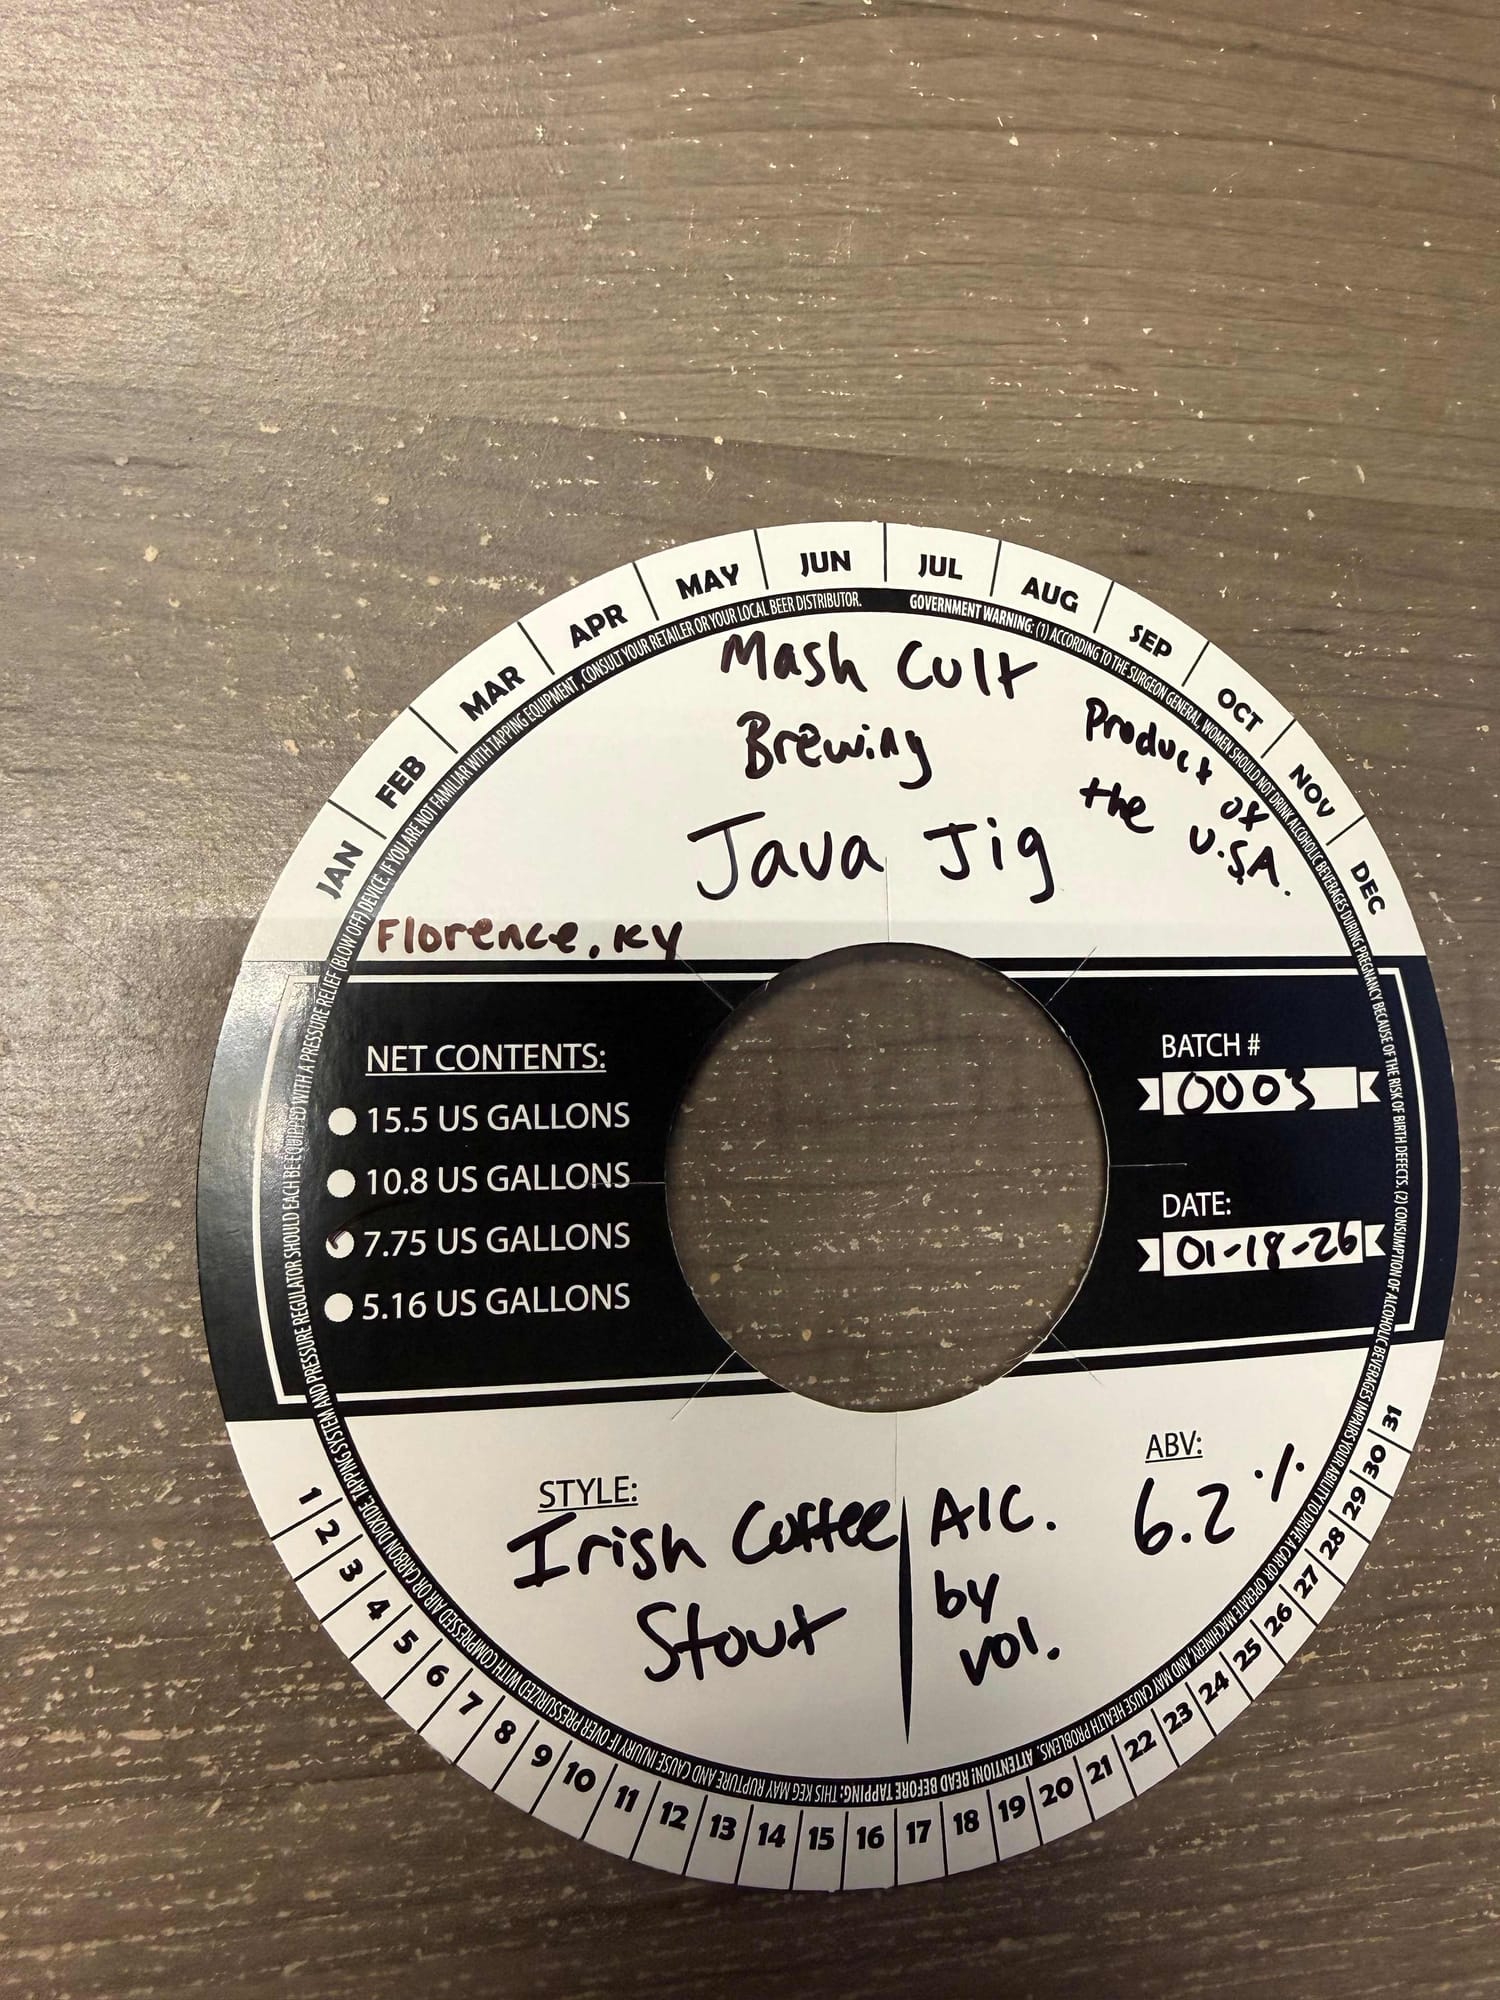 JAN
FEB
MAR
APR
MAY
JUN
JUL
AUG
SEP
OCT
NOV
DEC
GOVERNMENT WARNING: (1) ACCORDING TO THE SURGEON GENERAL, WOMEN SHOULD NOT DRINK ALCOHOLIC BEVERAGES DURING PREGNANCY BECAUSE OF THE RISK OF BIRTH DEFECTS. (2) CONSUMPTION OF ALCOHOLIC BEVERAGES IMPAIRS YOUR ABILITY TO DRIVE A CAR OR OPERATE MACHINERY, AND MAY CAUSE HEALTH PROBLEMS. ATTENTION! READ BEFORE TAPPING: THIS KEG MAY RUPTURE AND CAUSE INJURY IF OVER PRESSURIZED WITH COMPRESSED AIR OR CARBON DIOXIDE. TAPPING SYSTEM AND PRESSURE REGULATOR SHOULD EACH BE EQUIPPED WITH A PRESSURE RELIEF (BLOW OFF) DEVICE. IF YOU ARE NOT FAMILIAR WITH TAPPING EQUIPMENT, CONSULT YOUR RETAILER OR YOUR LOCAL BEER DISTRIBUTOR.
Mash Cult
Brewing
Java Jig
Product of
the U.S.A.
Florence, KY
NET CONTENTS:
15.5 US GALLONS
10.8 US GALLONS
7.75 US GALLONS
5.16 US GALLONS
BATCH #
0003
DATE:
01-18-26
STYLE:
Irish Coffee
Stout
Alc.
by
vol.
ABV:
6.2%
1
2
3
4
5
6
7
8
9
10
11
12
13
14
15
16
17
18
19
20
21
22
23
24
25
26
27
28
29
30
31